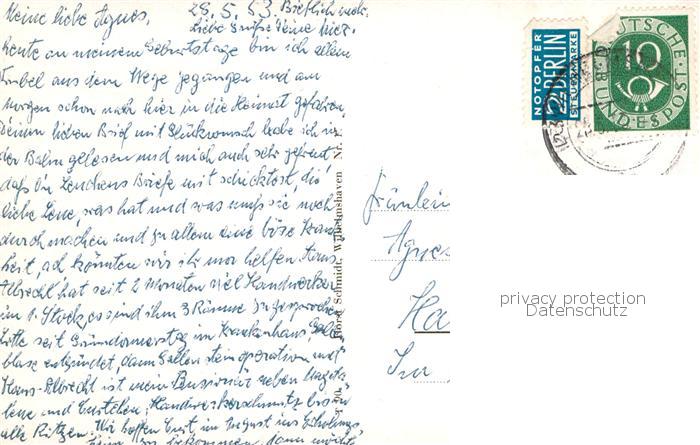 Meine liebe Agnes, 28.5.53 Brieflich mehr.
liebe Grüße Deine
heute an meinem Geburtstage bin ich allem
Trubel aus dem Wege gegangen und am
Morgen schon nach hier in die Heimat gefahren,
Deinen lieben Brief mit Glückwunsch habe ich in
der Bahn gelesen und mich auch sehr gefreut,
daß Du Lenchens Briefe mit schicktest, die
liebe Lene, was hat und was muß sie noch
durchmachen und zu allem eine böse Krank
heit, ach könnten wir ihr nur helfen Hans
Albrecht hat seit 2 Monaten viel Handwerker
im 1. Stock, es sind ihm 3 Räume zugesprochen
Lotte seit Gründonnerstag im Krankenhaus, Gallen
blase entzündet, dann Gallensteinoperation und
Hans-Albrecht ist mein Pensionär neben
lene und Handwerkerschmutz bis in
alle Ritzen. Wir hoffen im August ins Erholungs
heim zu bekommen, dann möchte
Horst Schmidt, Wilhelmshaven Nr.
NOTOPFER
2 BERLIN
STEUERMARKE
DEUTSCHE
10
BUNDESPOST
Fräulein
Agnes
Ha
In
privacy protection
Datenschutz